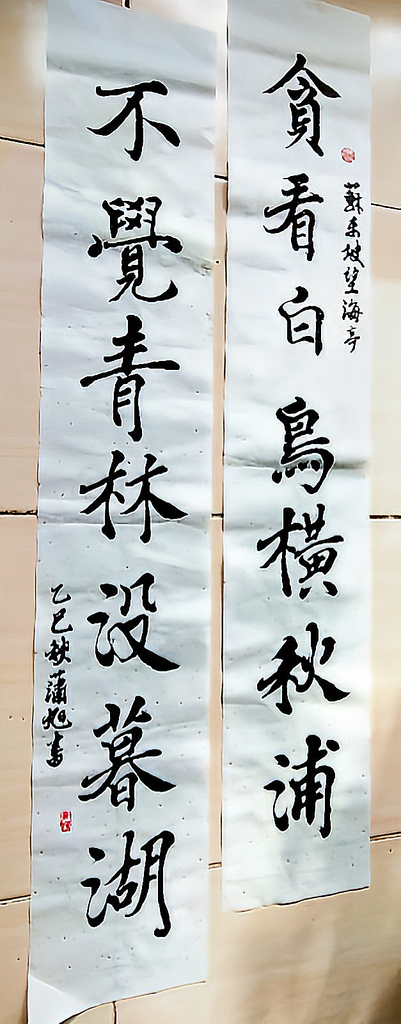 貪看白鳥橫秋浦
蘇東坡望海亭
不覺青林没暮湖
乙巳秋 旭書